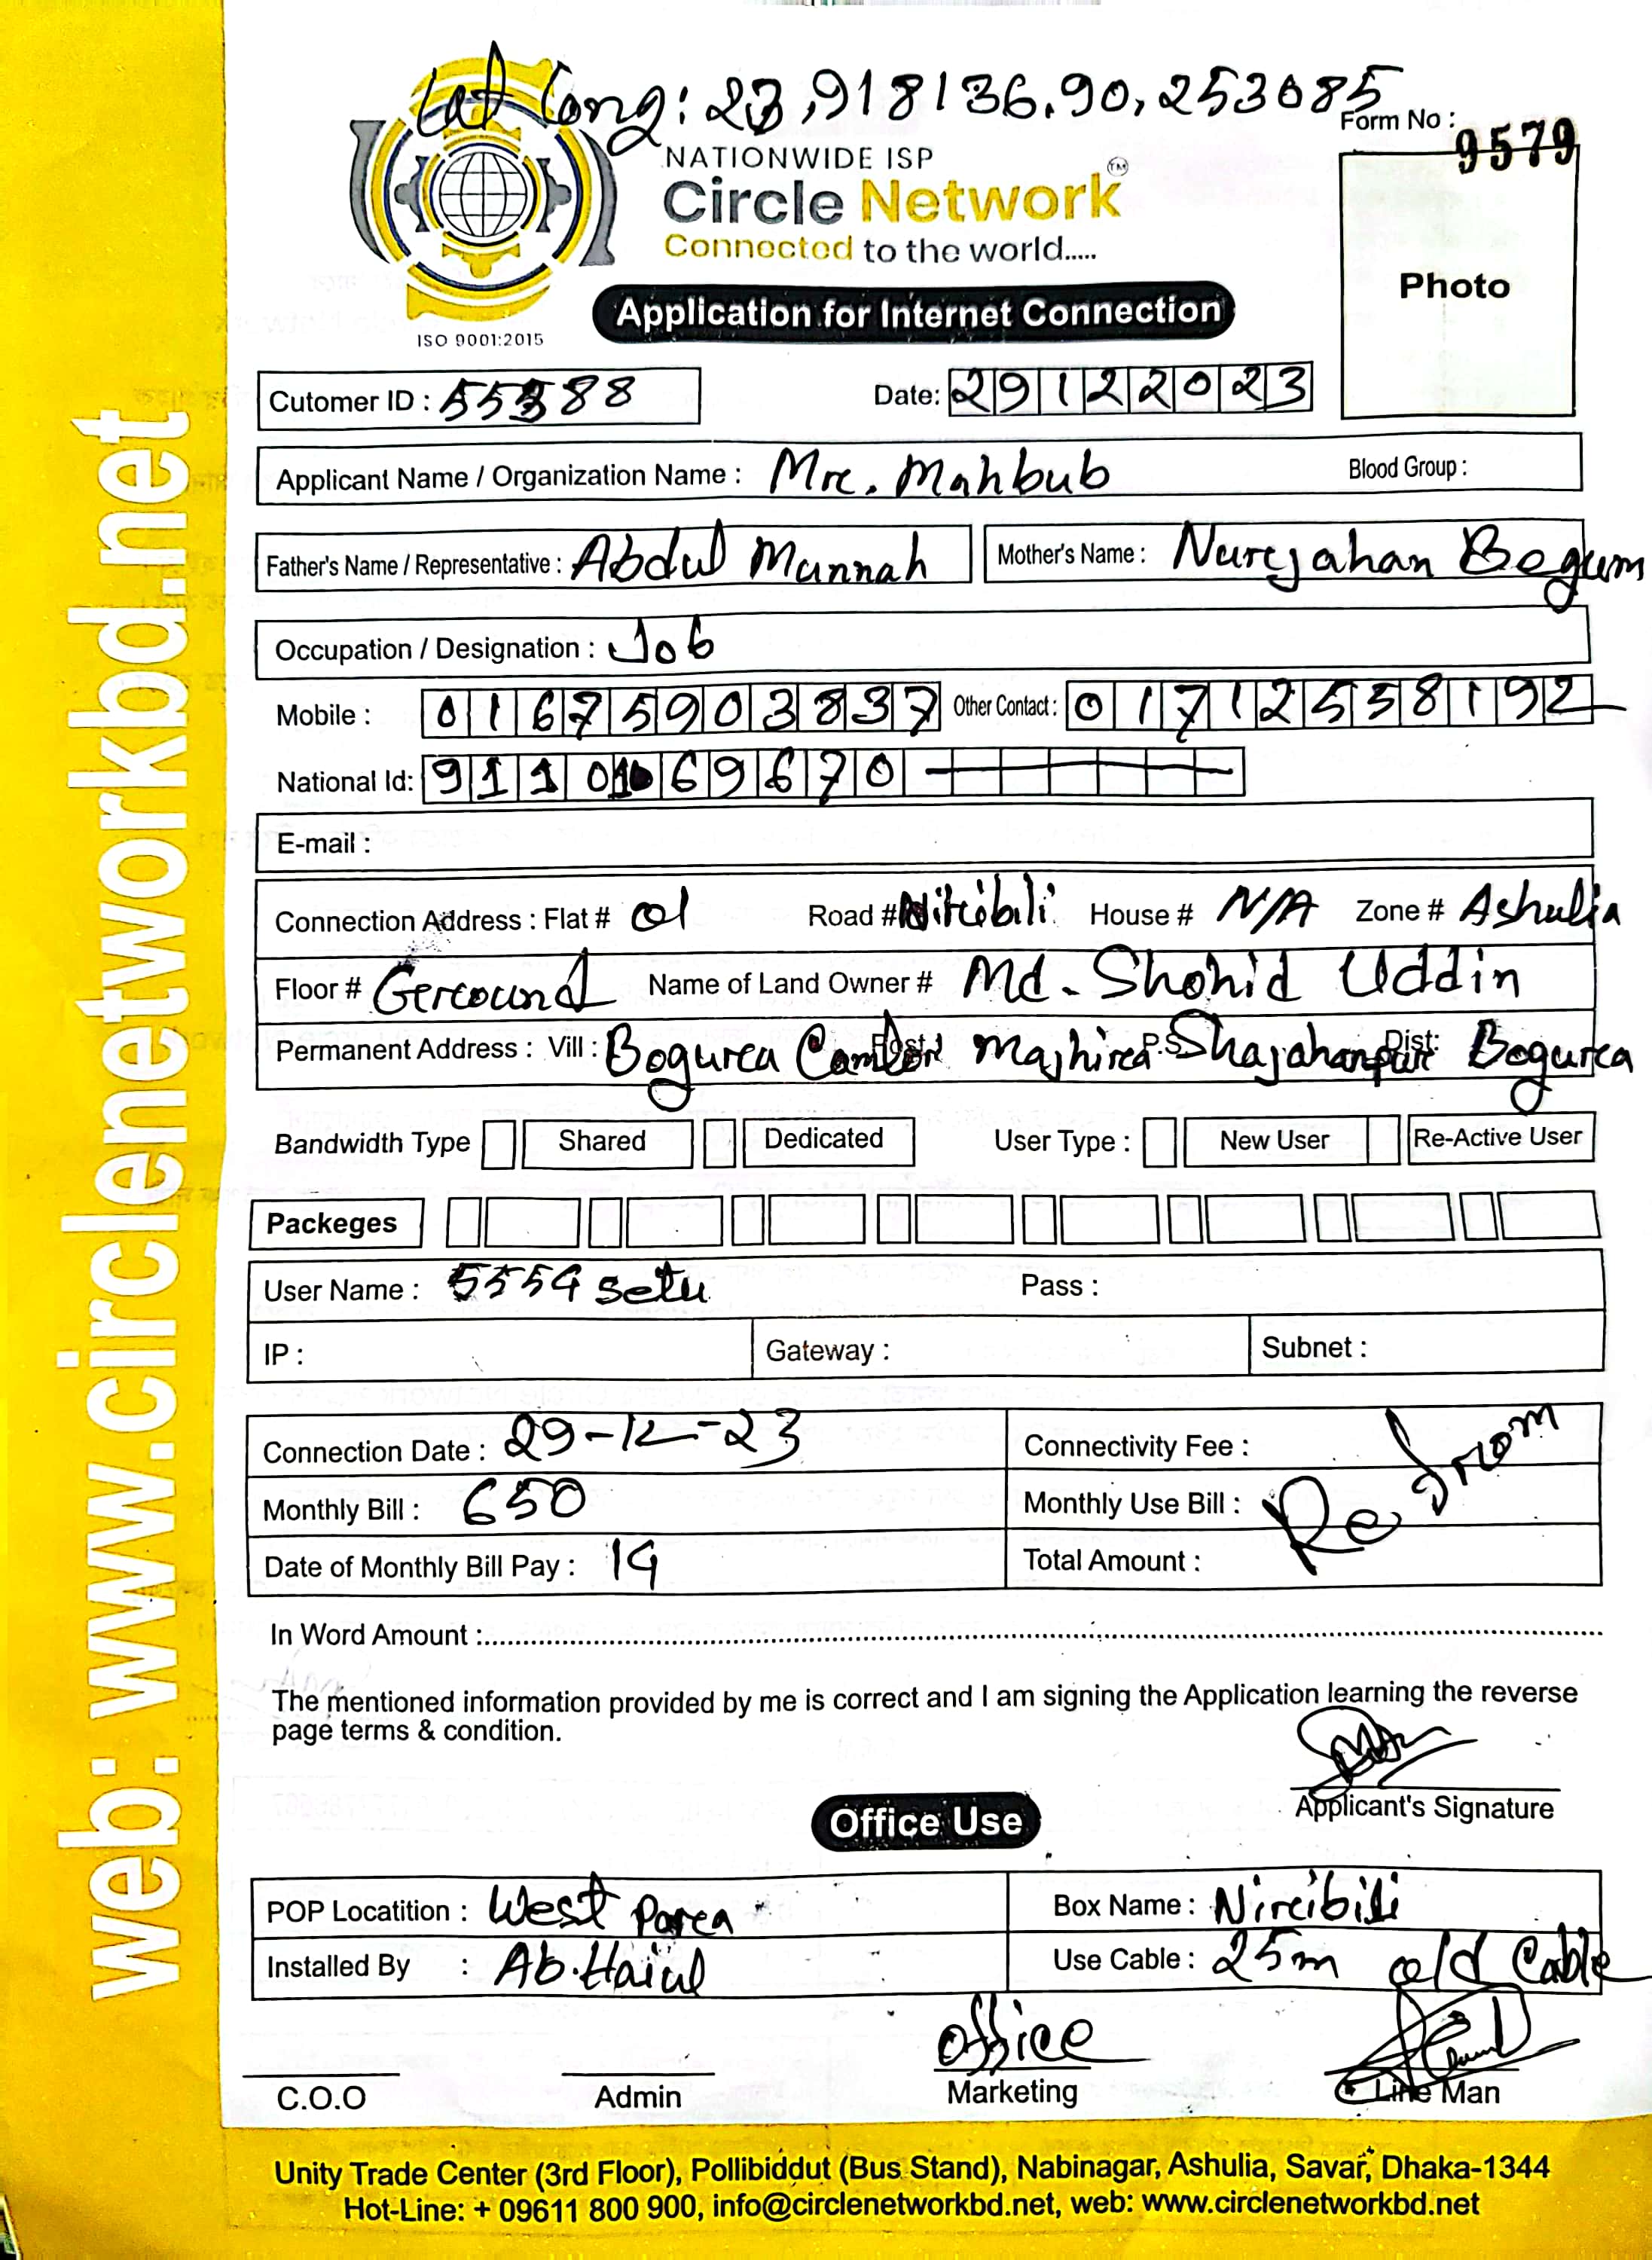 Lat Long: 23,918136.90,253085
Form No : 9579
NATIONWIDE ISP
Circle Network TM
Connected to the world.....
ISO 9001:2015
Application for Internet Connection
Photo
Cutomer ID : 55388
Date: 29122023
Applicant Name / Organization Name : Mrc. Mahbub Blood Group :
Father's Name / Representative : Abdul Mannah Mother's Name : Nurcjahan Begum
Occupation / Designation : Job
Mobile : 01675903837 Other Contact : 01712558192
National Id: 9110169670
E-mail :
Connection Address : Flat # 01 Road # Nircibili House # N/A Zone # Ashulia
Floor # Gercound Name of Land Owner # Md. Shohid Uddin
Permanent Address : Vill : Bogurca Post: Majhirca P.S Shajahanpur Dist: Bogurca
Bandwidth Type Shared Dedicated User Type : New User Re-Active User
Packeges
User Name : 5554 setu Pass :
IP : Gateway : Subnet :
Connection Date : 29-12-23 Connectivity Fee :
Monthly Bill : 650 Monthly Use Bill :
Date of Monthly Bill Pay : 14 Total Amount :
Re from
In Word Amount :
The mentioned information provided by me is correct and I am signing the Application learning the reverse
page terms & condition.
Applicant's Signature
Office Use
POP Locatition : West Parca Box Name : Nircibili
Installed By : Ab. Haiul Use Cable : 25m old Cable
office
C.O.O Admin Marketing Line Man
Unity Trade Center (3rd Floor), Pollibiddut (Bus Stand), Nabinagar, Ashulia, Savar, Dhaka-1344
Hot-Line: + 09611 800 900, info@circlenetworkbd.net, web: www.circlenetworkbd.net
web: www.circlenetworkbd.net